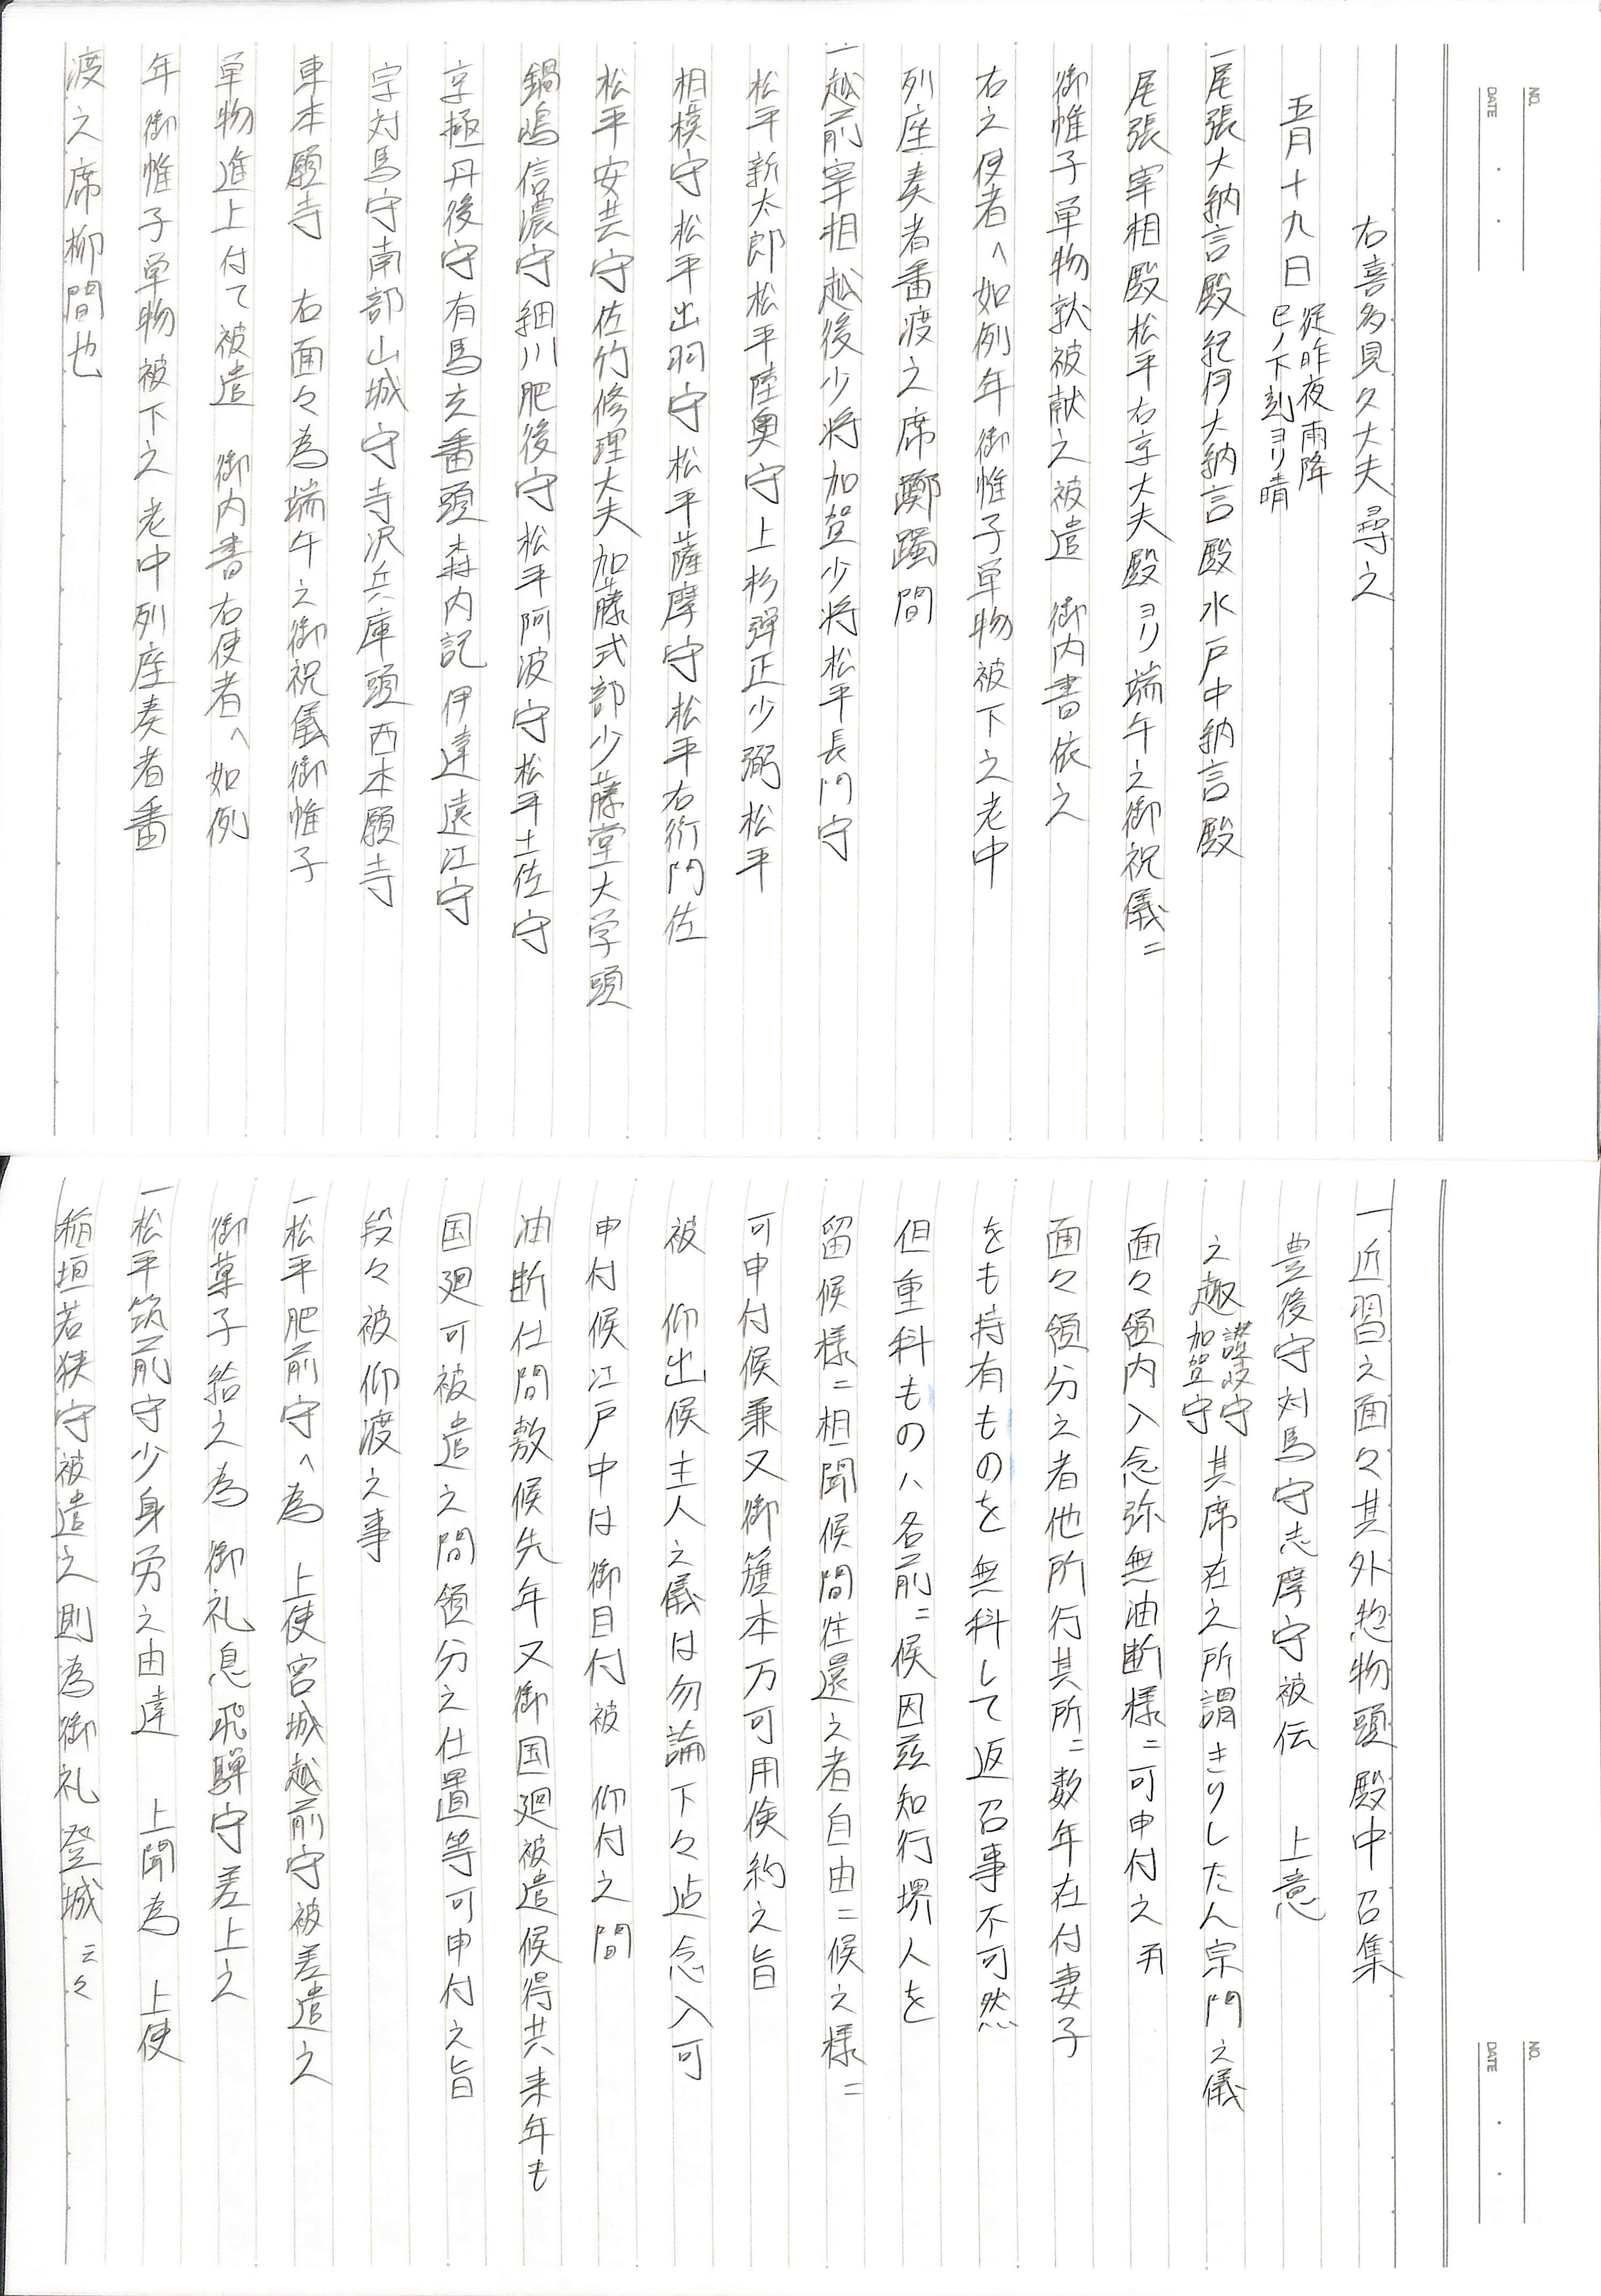 NO.
DATE
右喜多見久大夫尋之
五月十九日 従昨夜雨降
巳ノ下刻ヨリ晴
一尾張大納言殿紀伊大納言殿水戸中納言殿
尾張宰相殿松平右京大夫殿ヨリ端午之御祝儀ニ
御帷子単物就被献之被遣 御内書依之
右之使者ヘ如例年御帷子単物被下之老中
列座奏者番渡之席躑躅間
一越前宰相越後少将加賀少将松平長門守
松平新太郎松平陸奥守上杉弾正少弼松平
相模守松平出羽守松平薩摩守松平右衛門佐
松平安芸守佐竹修理大夫加藤式部少藤堂大学頭
鍋嶋信濃守細川肥後守松平阿波守松平土佐守
京極丹後守有馬玄蕃頭森内記伊達遠江守
宗対馬守南部山城守寺沢兵庫頭西本願寺
東本願寺 右面々為端午之御祝儀御帷子
単物進上付て被遣 御内書右使者ヘ如例
年御帷子単物被下之老中列座奏者番
渡之席柳間也
NO.
DATE
一近習之面々其外惣物頭殿中召集
豊後守対馬守志摩守被伝 上意
之趣讃岐守
加賀守其席在之所謂きりしたん宗門之儀
面々領内入念弥無油断様ニ可申付之再
面々領分之者他所行其所ニ数年在付妻子
をも持有ものを無科して返召事不可然
但重科ものハ各前ニ候因茲知行堺人を
留候様ニ相聞候間往還之者自由ニ候之様ニ
可申付候兼又御籏本万可用倹約之旨
被 仰出候主人之儀は勿論下々迠念入可
申付候江戸中は御目付被 仰付之間
油断仕間敷候先年又御国廻被遣候得共来年も
国廻可被遣之間領分之仕置等可申付之旨
段々被仰渡之事
一松平肥前守ヘ為 上使宮城越前守被差遣之
御菓子給之為 御礼息飛騨守差上之
一松平筑前守少身労之由達 上聞為 上使
稲垣若狭守被遣之則為御礼登城云々